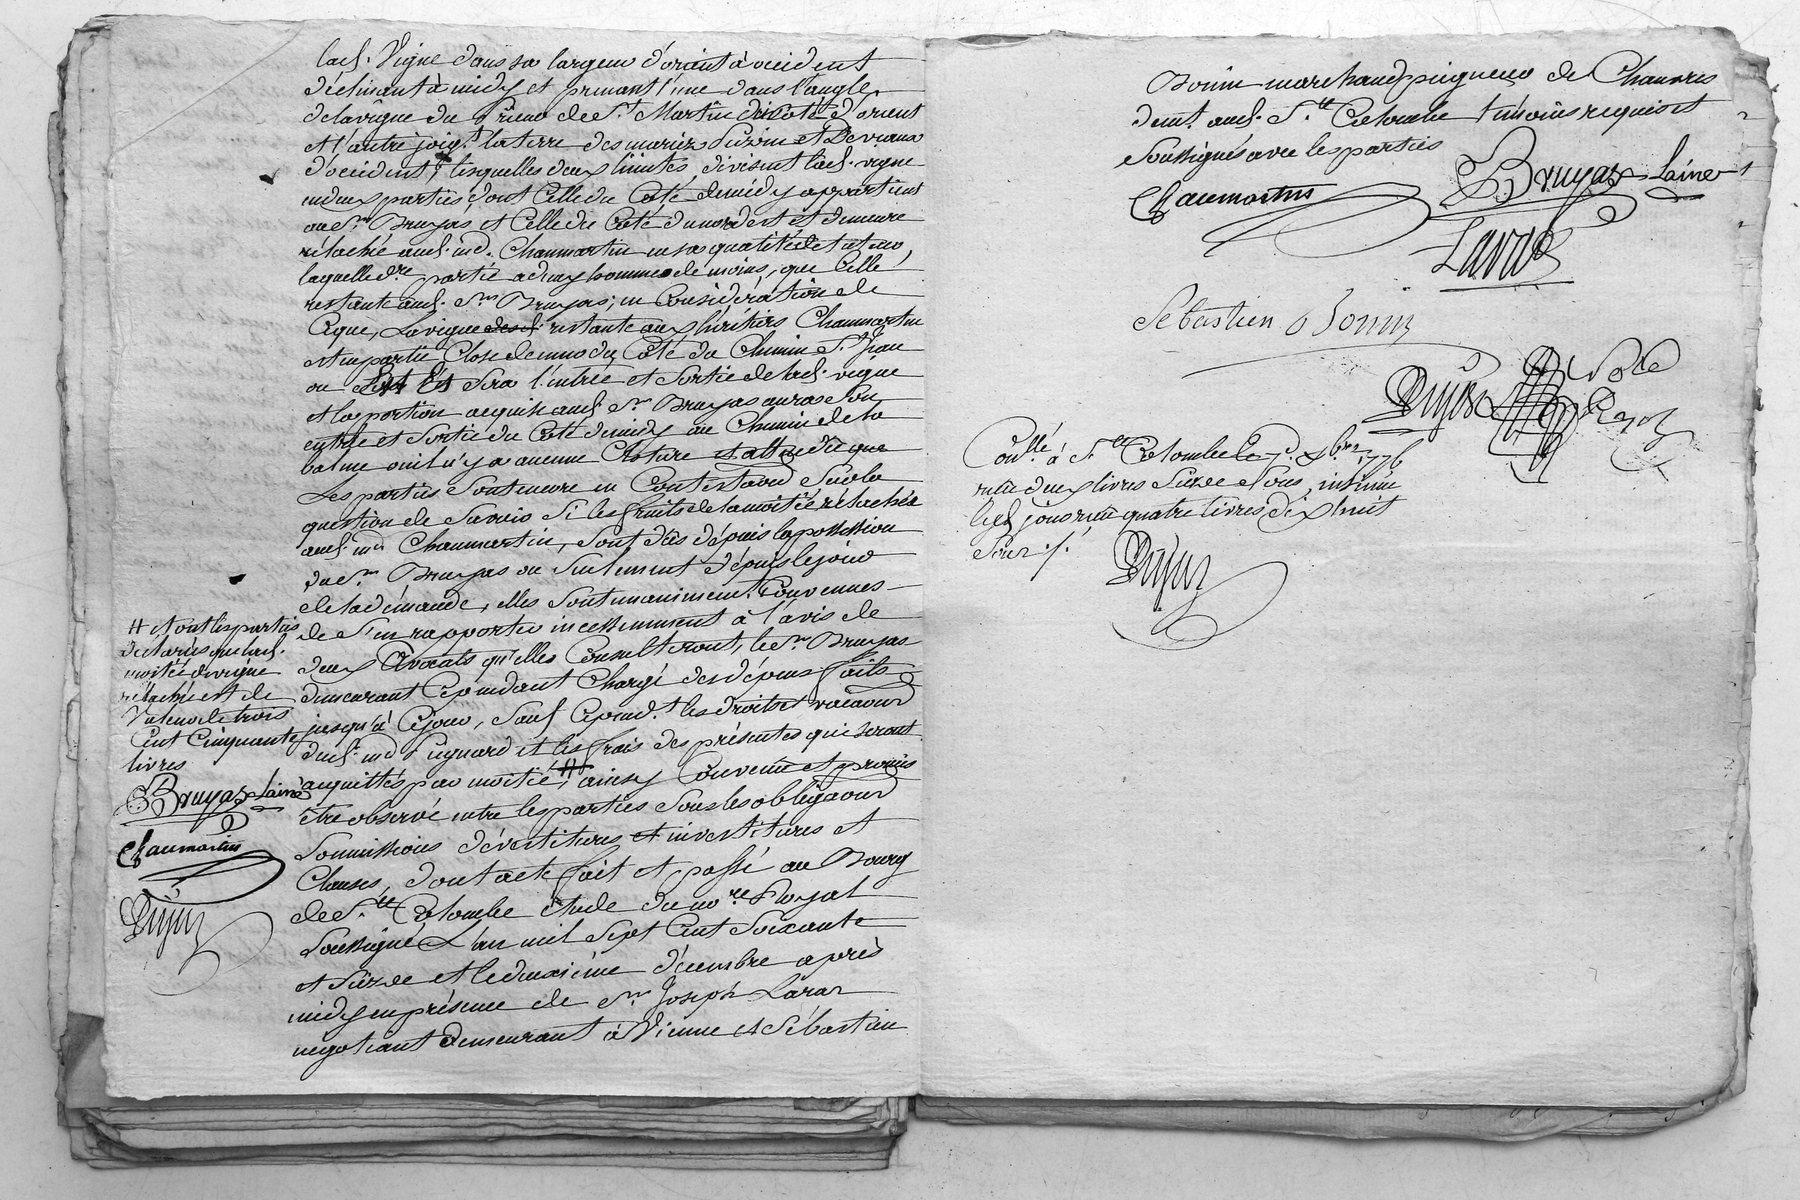 lad. Vigne dans sa largeur d'orient à occident
déclinant à midy et prenant l'une dans l'angle
de la vigne du Prieur de St. Martin du coté d'orient
et l'autre joig.t la terre des mariés Suzin et Devraux
d'occident, lesquelles deux limites divisent lad. vigne
en deux parties dont celle du coté de midy appartient
au Sr. Bruyas et celle du coté du nord est et demeure
rélachée aud. md. Chaumartin en sa qualité de tuteur,
laquelle dre partie a deux hommes de moins, que celle
restante aud. Sr. Bruyas; en considération de
ce que, la vigne restante aux héritiers Chaumartin
est en partie close de murs du coté du chemin St. Jean
ou est et sera l'entrée et sortie de lad. vigne
et la portion acquise aud. Sr. Bruyas aura son
entrée et sortie du coté de midy au chemin de la
balme ou il n'y a aucune cloture et attendu que
les parties sont encore en contestaôn sur la
question de savoir si les fruits de la moitié rélachée
aud. md. Chaumartin, sont dûs dépuis la possession
du Sr. Bruyas ou seulement dépuis le jour
de la démande, elles sont unanimem.t convenues
de s'en rapporter incessemment à l'avis de
deux avocats qu'elles consulteront, le Sr. Bruyas
demeurant cépendant chargé des dépens faits
jusqu'à ce jour, sauf cepend.t les droits et vacaôns
dud. md. Peignard et les frais des présentes qui seront
acquittés par moitié, # ainsy convenu et promis
être observé entre les parties sous les obligaôns
soumissions dévestitures et investitures et
clauses, dont acte fait et passé au Bourg
de Ste. Colombe étude du nore. Royal
soussigné L'an mil sept cent soixante
et seize et le deuxiéme décembre après
midy en présence de Sr. Joseph Laras
negotiant demeurant à Vienne et Sébastien
# et ont les parties
déclarés que lad.
moitié de vigne
rélachée est de
valeur de trois
cent cinquante
livres
Bruyas Lainé
Chaumartin
Dujas
Bonin marchand peigneur de chanvres
demt. aud. Ste. Colombe témoins requis et
soussignés avec les parties
Bruyas Lainé
Chaumartin
Laras
Sebastien Bonin
Dujas
Conllé à Ste. Colombe le 7. Xbre 1776
reçu deux livres seize sous, insinué
led. jour reçu quatre livres dix huit
sous ./.
Dujas